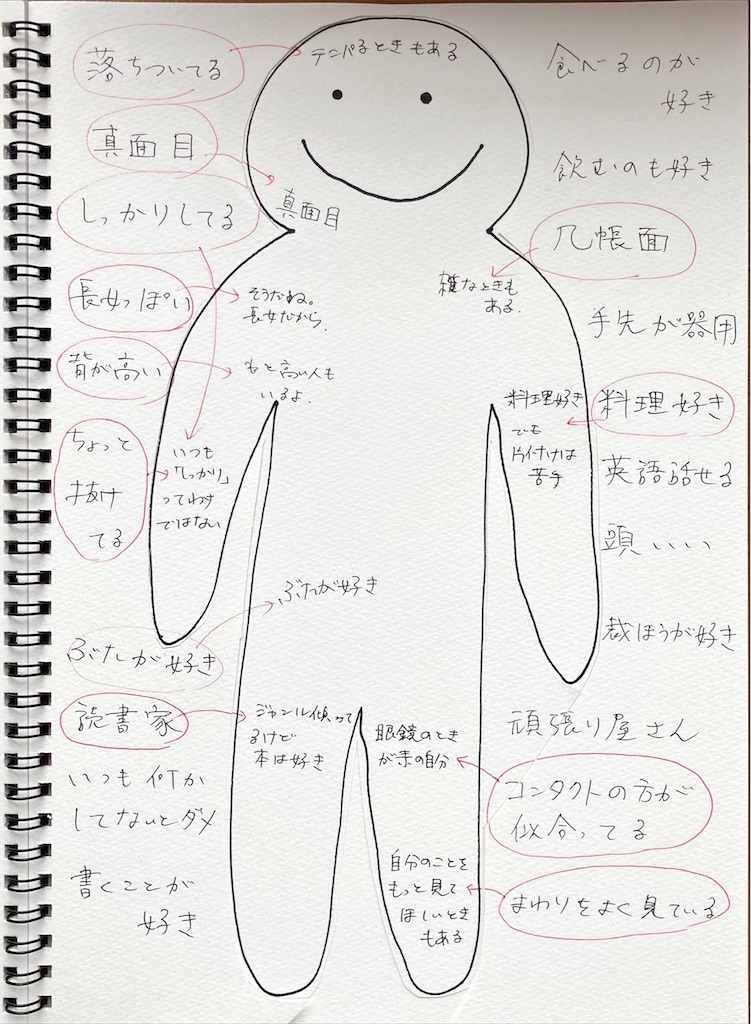 落ちついてる
真面目
しっかりしてる
長女っぽい
背が高い
ちょっと
抜け
てる
ぶたが好き
読書家
いつも何か
してないとダメ
書くことが
好き
テンパるときもある
真面目
そうだね。
長女だから.
もっと高い人も
いるよ.
いつも
「しっかり」
ってわけ
ではない
ぶたが好き
ジャンル偏って
るけど
本は好き
雑なときも
ある.
料理好き
でも
片付けは
苦手
眼鏡のとき
が素の自分
自分のことを
もっと見て
ほしいとき
もある
食べるのが
好き
飲むのも好き
几帳面
手先が器用
料理好き
英語話せる
頭いい
裁ほうが好き
頑張り屋さん
コンタクトの方が
似合ってる
まわりをよく見ている